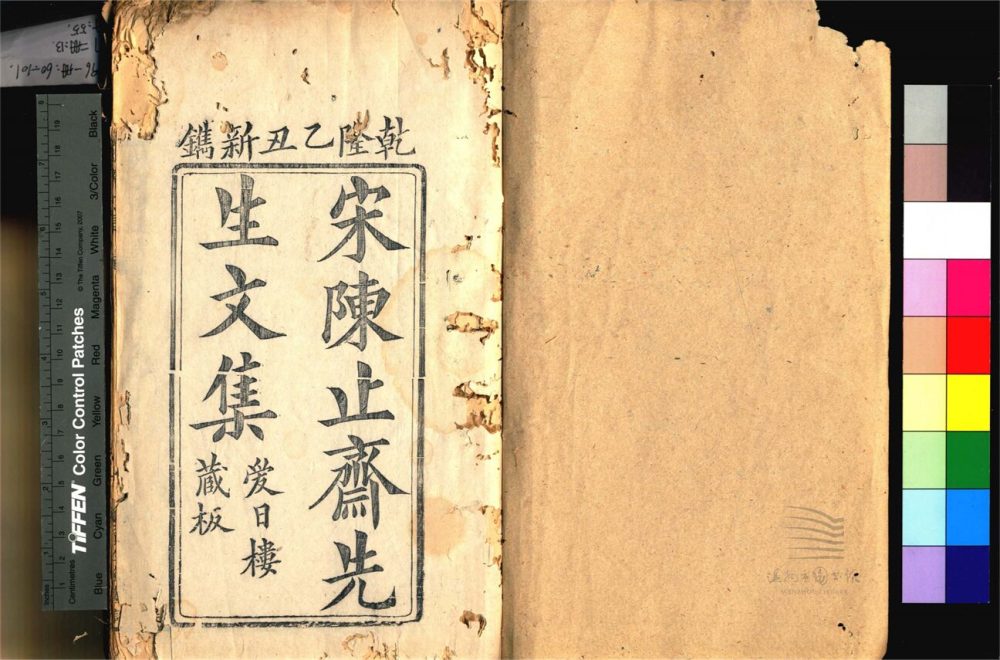 乾隆乙丑新鐫
宋陳止齋先
生文集
爱日樓
蔵板
Inches
Centimetres
TIFFEN Color Control Patches
© The Tiffen Company, 2007
Blue
Cyan
Green
Yellow
Red
Magenta
White
3/Color
Black